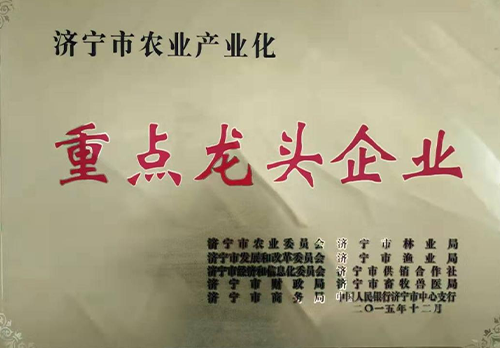 济宁市农业产业化
重点龙头企业
济宁市农业委员会 济宁市林业局
济宁市发展和改革委员会 济宁市渔业局
济宁市经济和信息化委员会 济宁市供销合作社
济宁市财政局 济宁市畜牧兽医局
济宁市商务局 中国人民银行济宁市中心支行
二〇一五年十二月